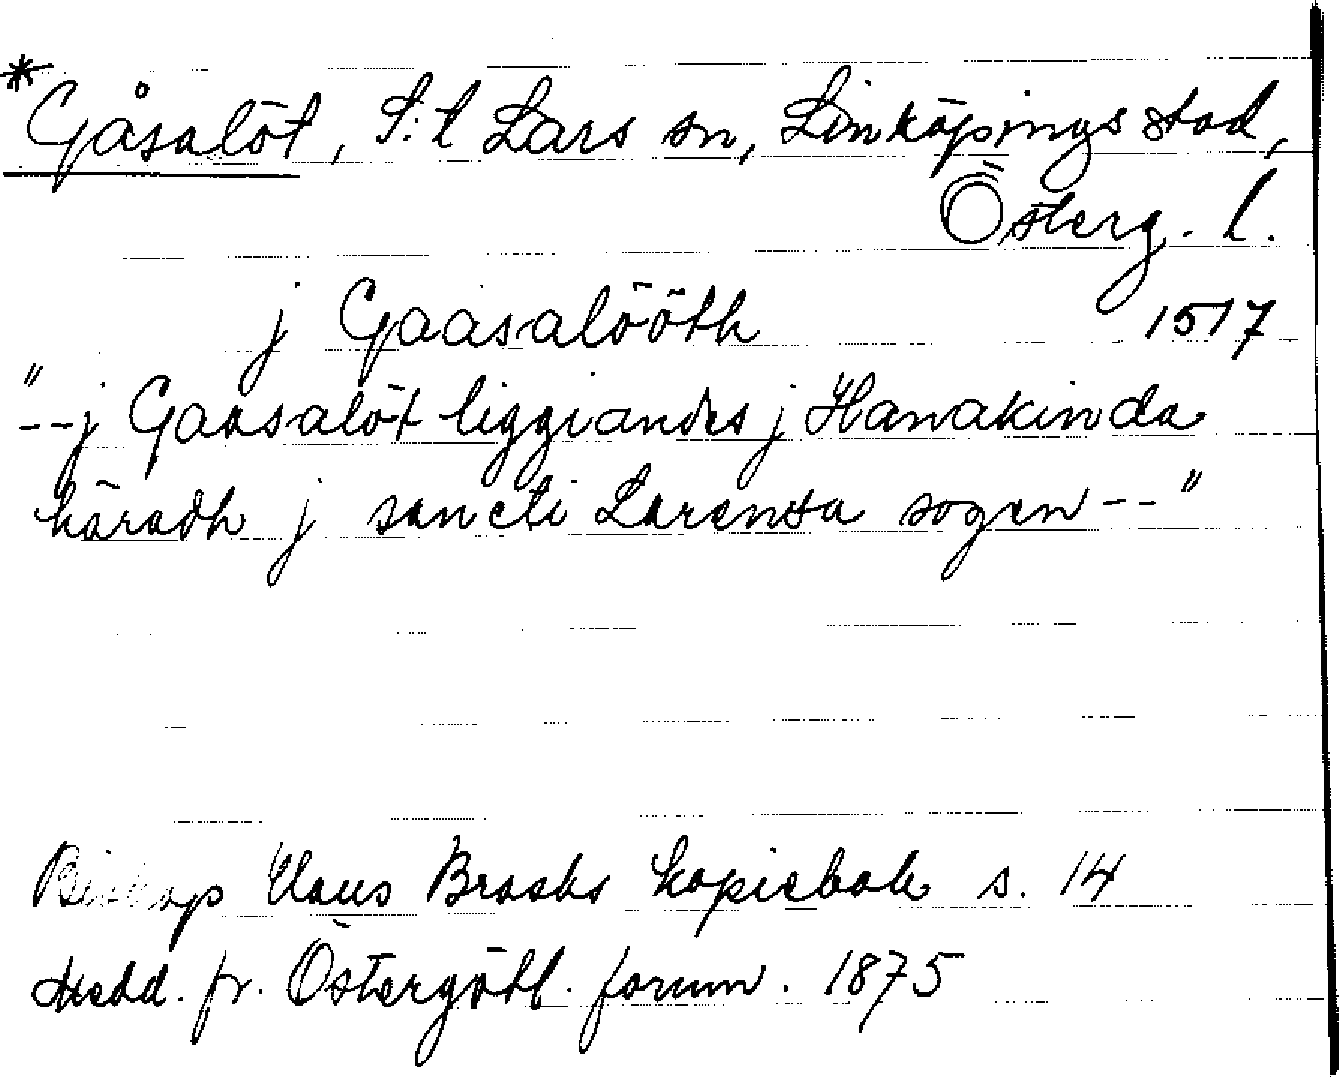 *Gåsalöt, S:t Lars sn, Linköpings stad,
Österg. l.
j Gaasalööth 1517
"--j Gaasalöt liggiandes j Hanakinda
häradh j sancti Larensa sogen--"
Biskop Hans Brasks kopiebok s. 14
Medd. fr. Östergötl. fornm. 1875